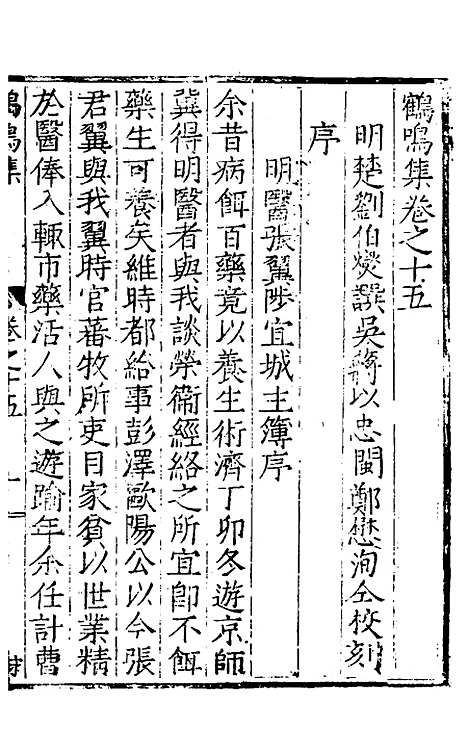 鶴鳴集卷之十五
明楚劉伯燮譔吳蔣以忠閩鄭懋洵仝校刻
序
明醫張翼陟宜城主簿序
余昔病餌百藥竟以養生術濟丁卯冬遊京師
冀得明醫者與我談榮衞經絡之所宜卽不餌
藥生可養矣維時都給事彭澤歐陽公以今張
君翼與我翼時官蕃牧所吏目家貧以世業精
於醫俸入輒市藥活人與之遊踰年余任計曹
鶴鳴集 卷之十五 一